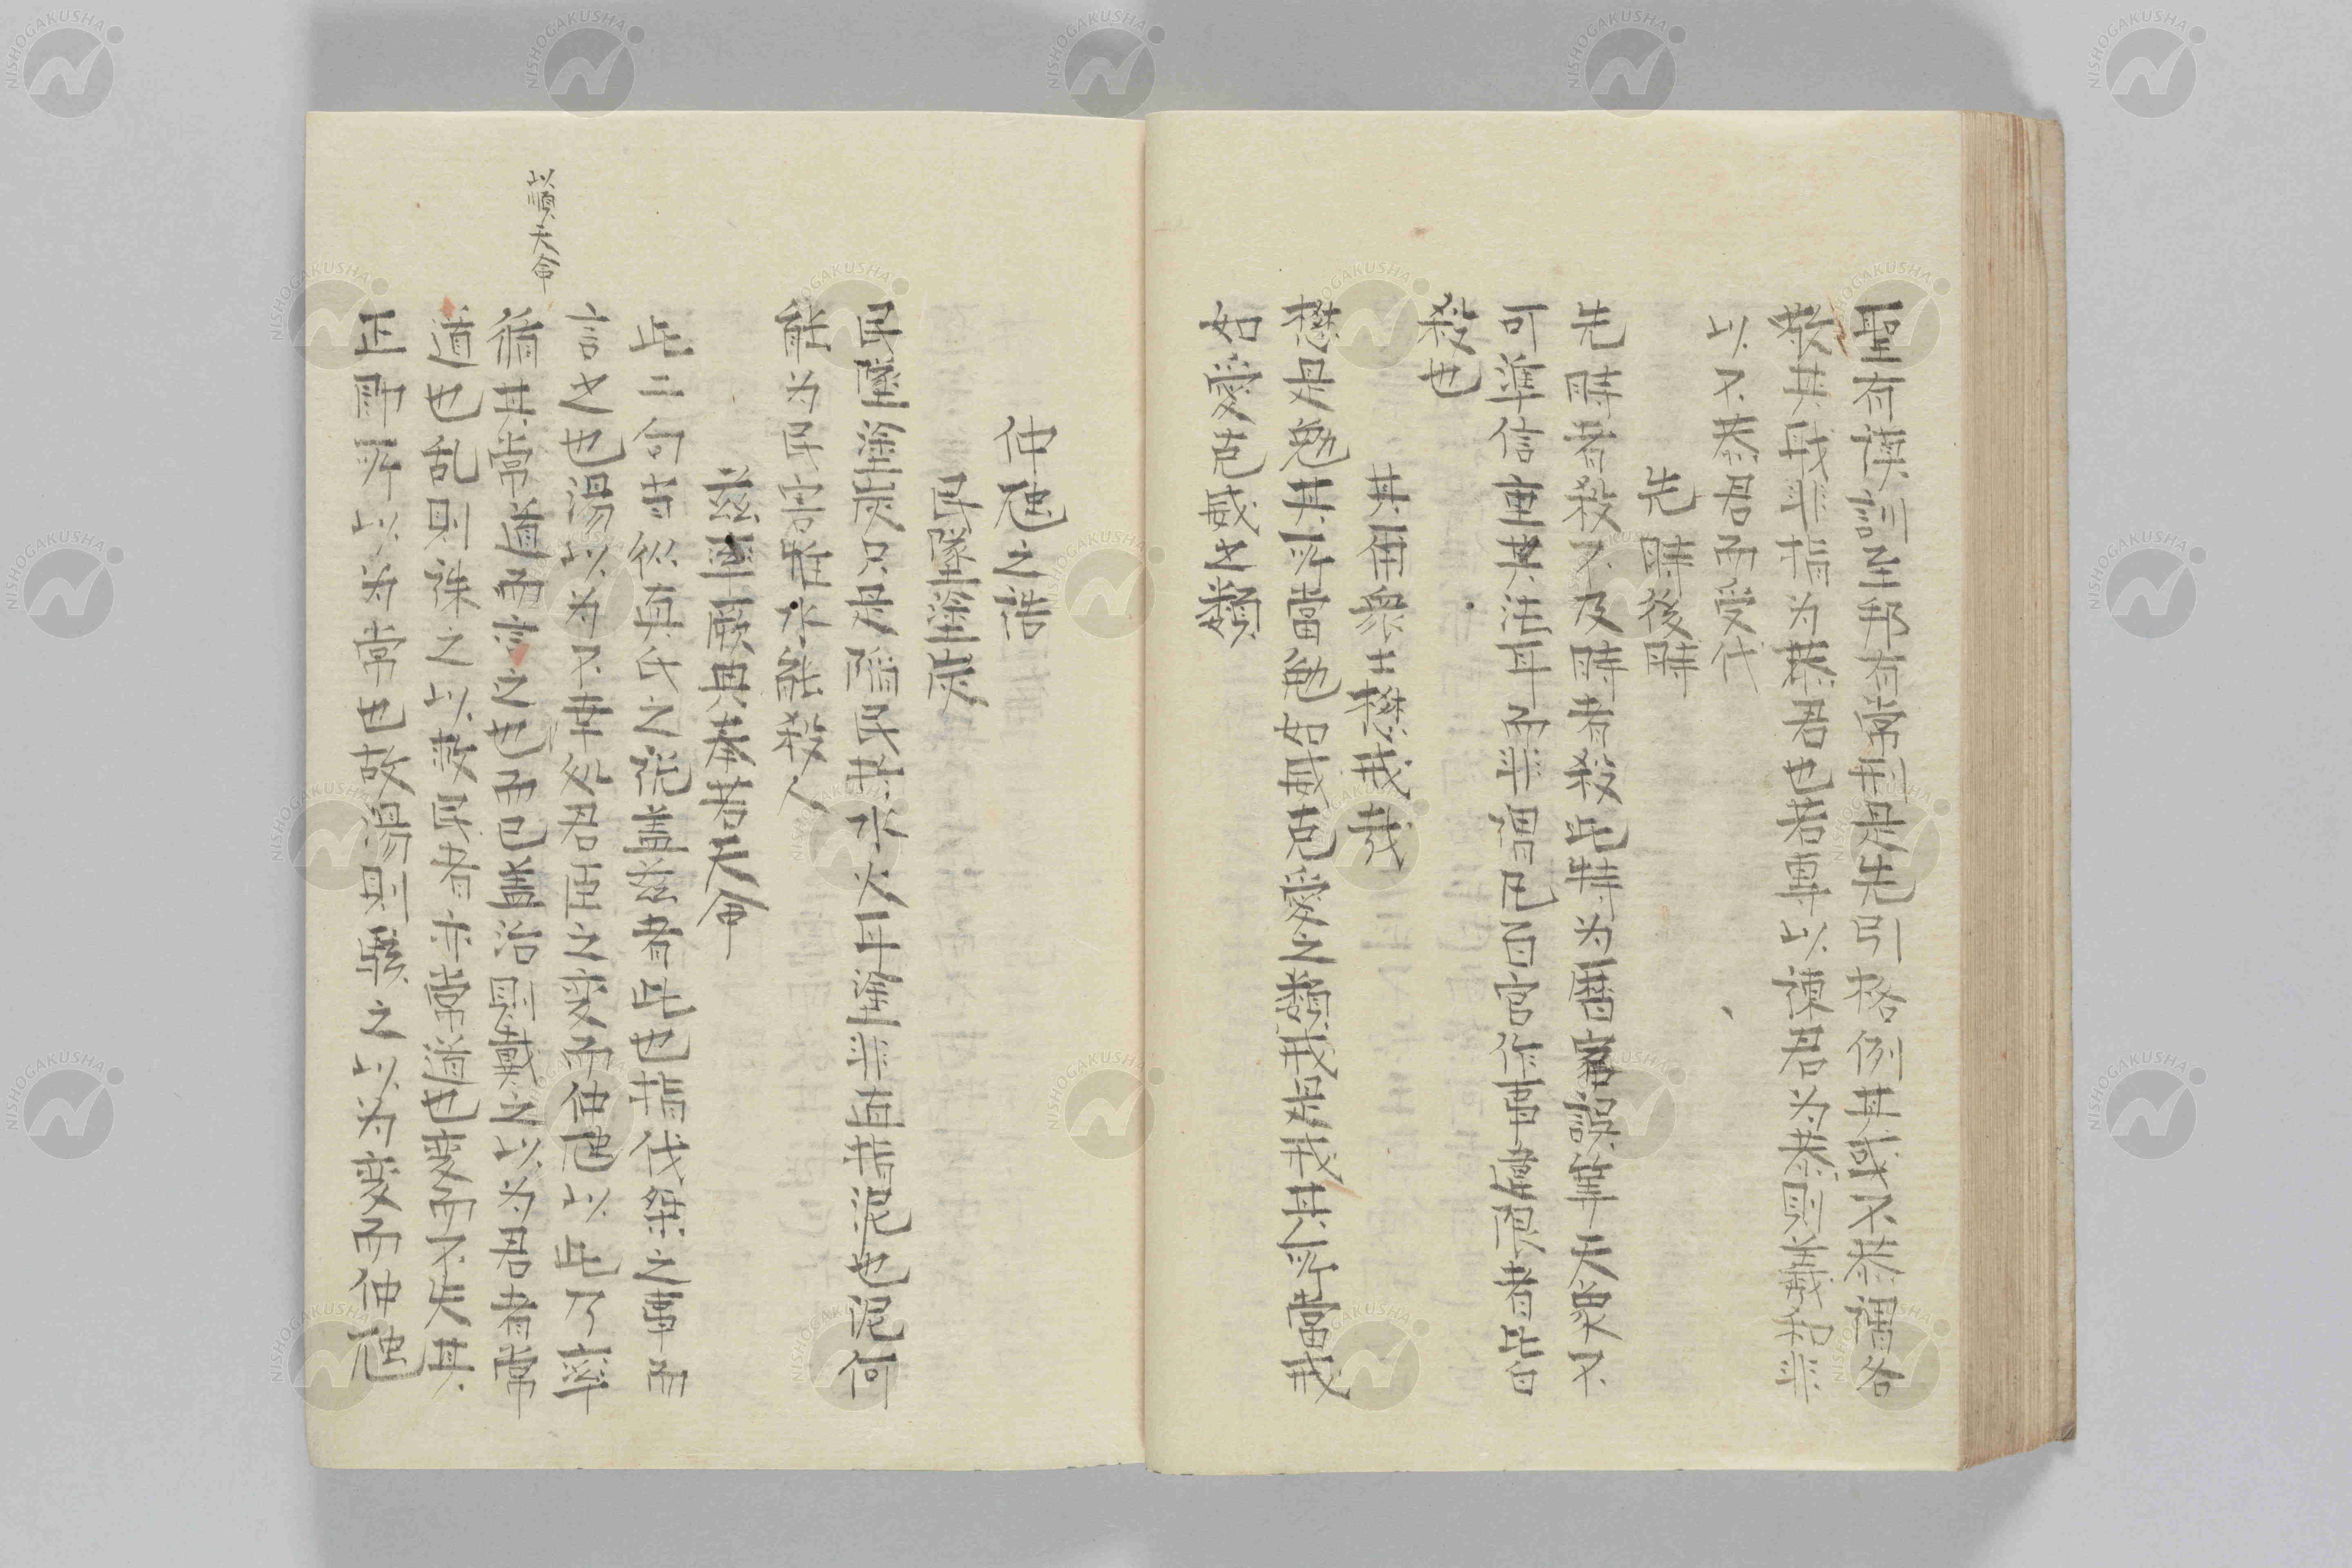 聖有謨訓至邦有常刑是先引格例其或不恭謂各
敬其我非指为恭君也若專以諫君为恭則羲和非
以不恭君而受代
先時後時
先時者殺不及時者殺此特为曆家誤筭天变不
可準信重其法耳而非謂凡百官作事常限者皆
殺也
其甬衆士懋戒哉
懋是勉其所當勉如威克愛之類戒是戒其所當戒
如愛克威之類
仲虺之誥
民墜塗炭
民墜塗炭只是陥民於水火耳塗非直指泥也泥何
能为民害惟水能殺人
茲率厥典奉若天命
此二句若從真氏之説盖茲者此也指伐桀之事而
言之也湯以为不幸処君臣之变而仲虺以此乃率
循其常道而言之也而已盖治則戴之以为君者常
道也乱則誅之以救民者亦常道也变而不失其
正即所以为常也故湯則駭之以为变而仲虺
以順天命
NISHOGAKUSHA